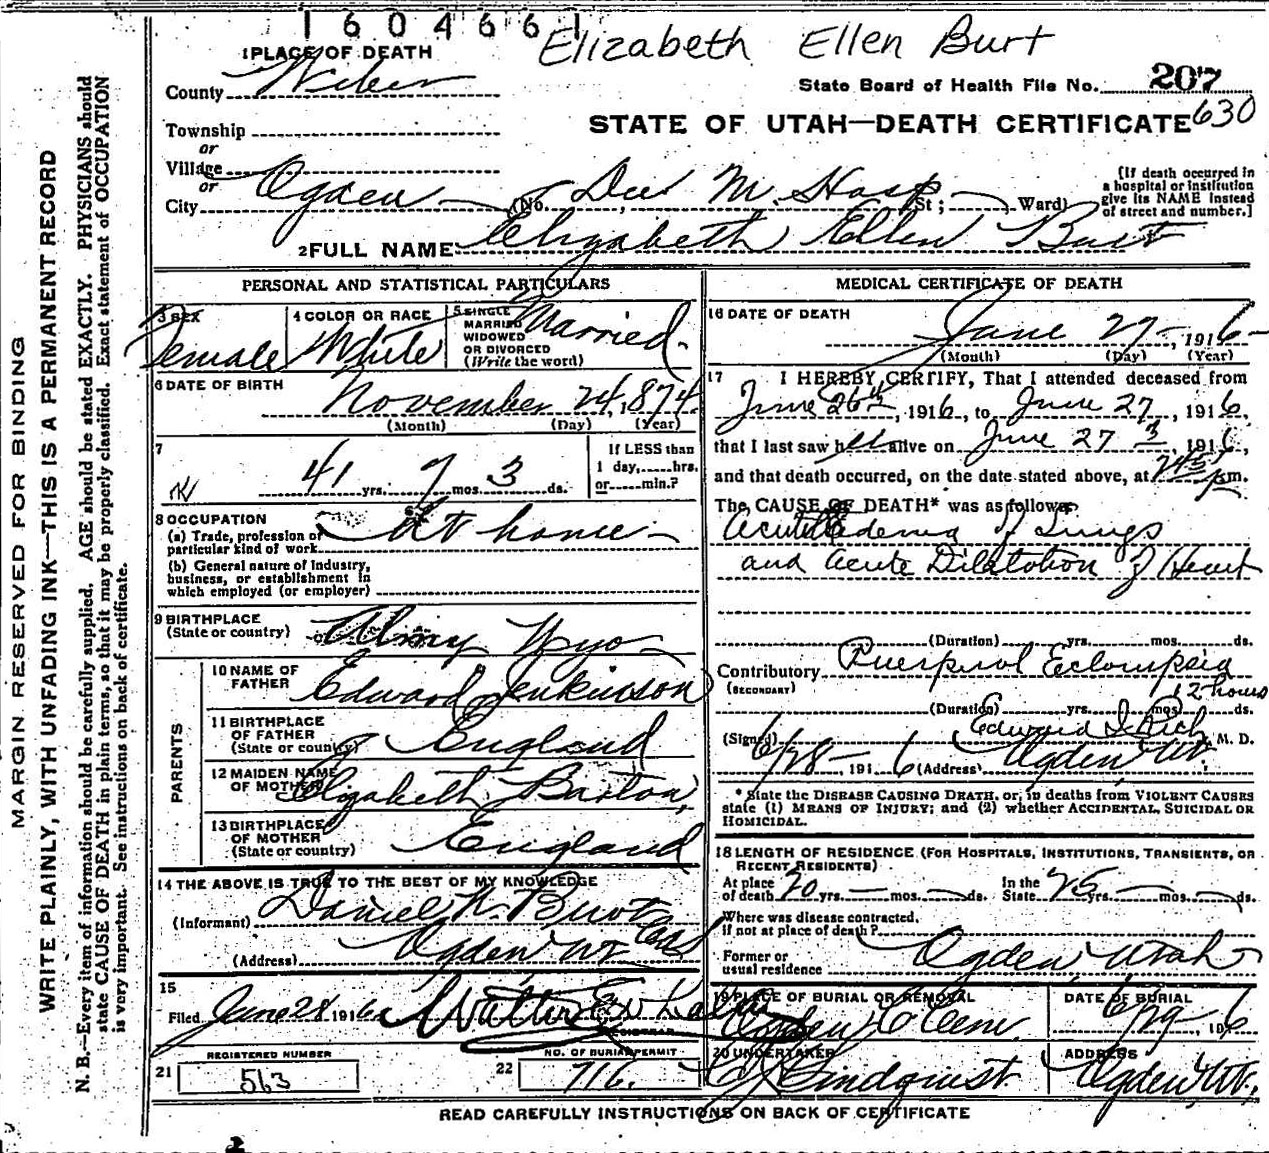 1604661
Elizabeth Ellen Burt
1 PLACE OF DEATH
County Weber
State Board of Health File No. 207
630
STATE OF UTAH—DEATH CERTIFICATE
Township
or
Village
or
City Ogden (No. Dee M. Hosp St; Ward)
[If death occurred in
a hospital or institution
give its NAME instead
of street and number.]
2 FULL NAME Elizabeth Ellen Burt
PERSONAL AND STATISTICAL PARTICULARS
3 SEX
Female
4 COLOR OR RACE
White
5 SINGLE
MARRIED
WIDOWED
OR DIVORCED
(Write the word)
Married
6 DATE OF BIRTH
November 24, 1874
(Month) (Day) (Year)
7
41 yrs. 7 mos. 3 ds.
If LESS than
1 day, hrs.
or min.?
8 OCCUPATION
(a) Trade, profession or
particular kind of work At home
(b) General nature of Industry,
business, or establishment in
which employed (or employer)
9 BIRTHPLACE
(State or country) Almy Wyo
PARENTS
10 NAME OF
FATHER Edward Jenkinson
11 BIRTHPLACE
OF FATHER
(State or country) England
12 MAIDEN NAME
OF MOTHER Elizabeth Barton
13 BIRTHPLACE
OF MOTHER
(State or country) England
14 THE ABOVE IS TRUE TO THE BEST OF MY KNOWLEDGE
(Informant) Daniel Burt
(Address) Ogden Ut
15
Filed June 28 1916 Walter
REGISTRAR
REGISTERED NUMBER
21 563
NO. OF BURIAL PERMIT
22 716.
MEDICAL CERTIFICATE OF DEATH
16 DATE OF DEATH
June 27, 1916
(Month) (Day) (Year)
17 I HEREBY CERTIFY, That I attended deceased from
June 26th, 1916, to June 27, 1916,
that I last saw her alive on June 27, 1916,
and that death occurred, on the date stated above, at pm.
The CAUSE OF DEATH* was as follows:
Acute Edema of Lungs
and Acute Dilatation of Heart
(Duration) yrs. mos. ds.
Contributory Puerperal Eclampsia
(SECONDARY)
12 hours
(Duration) yrs. mos. ds.
(Signed) Edward I Rich, M. D.
6/28 1916 (Address) Ogden Ut.
* State the DISEASE CAUSING DEATH, or, in deaths from VIOLENT CAUSES
state (1) MEANS OF INJURY; and (2) whether ACCIDENTAL, SUICIDAL OR
HOMICIDAL.
18 LENGTH OF RESIDENCE (FOR HOSPITALS, INSTITUTIONS, TRANSIENTS, OR
RECENT RESIDENTS)
At place
of death 20 yrs. mos. ds.
In the
State 25 yrs. mos. ds.
Where was disease contracted,
if not at place of death?
Former or
usual residence Ogden Utah
19 PLACE OF BURIAL OR REMOVAL
Ogden C Cem.
DATE OF BURIAL
6/29, 1916
20 UNDERTAKER
Lindquist
ADDRESS
Ogden, Ut.
READ CAREFULLY INSTRUCTIONS ON BACK OF CERTIFICATE
MARGIN RESERVED FOR BINDING
WRITE PLAINLY, WITH UNFADING INK—THIS IS A PERMANENT RECORD
N. B.—Every item of information should be carefully supplied. AGE should be stated EXACTLY. PHYSICIANS should
state CAUSE OF DEATH in plain terms, so that it may be properly classified. Exact statement of OCCUPATION
is very important. See instructions on back of certificate.